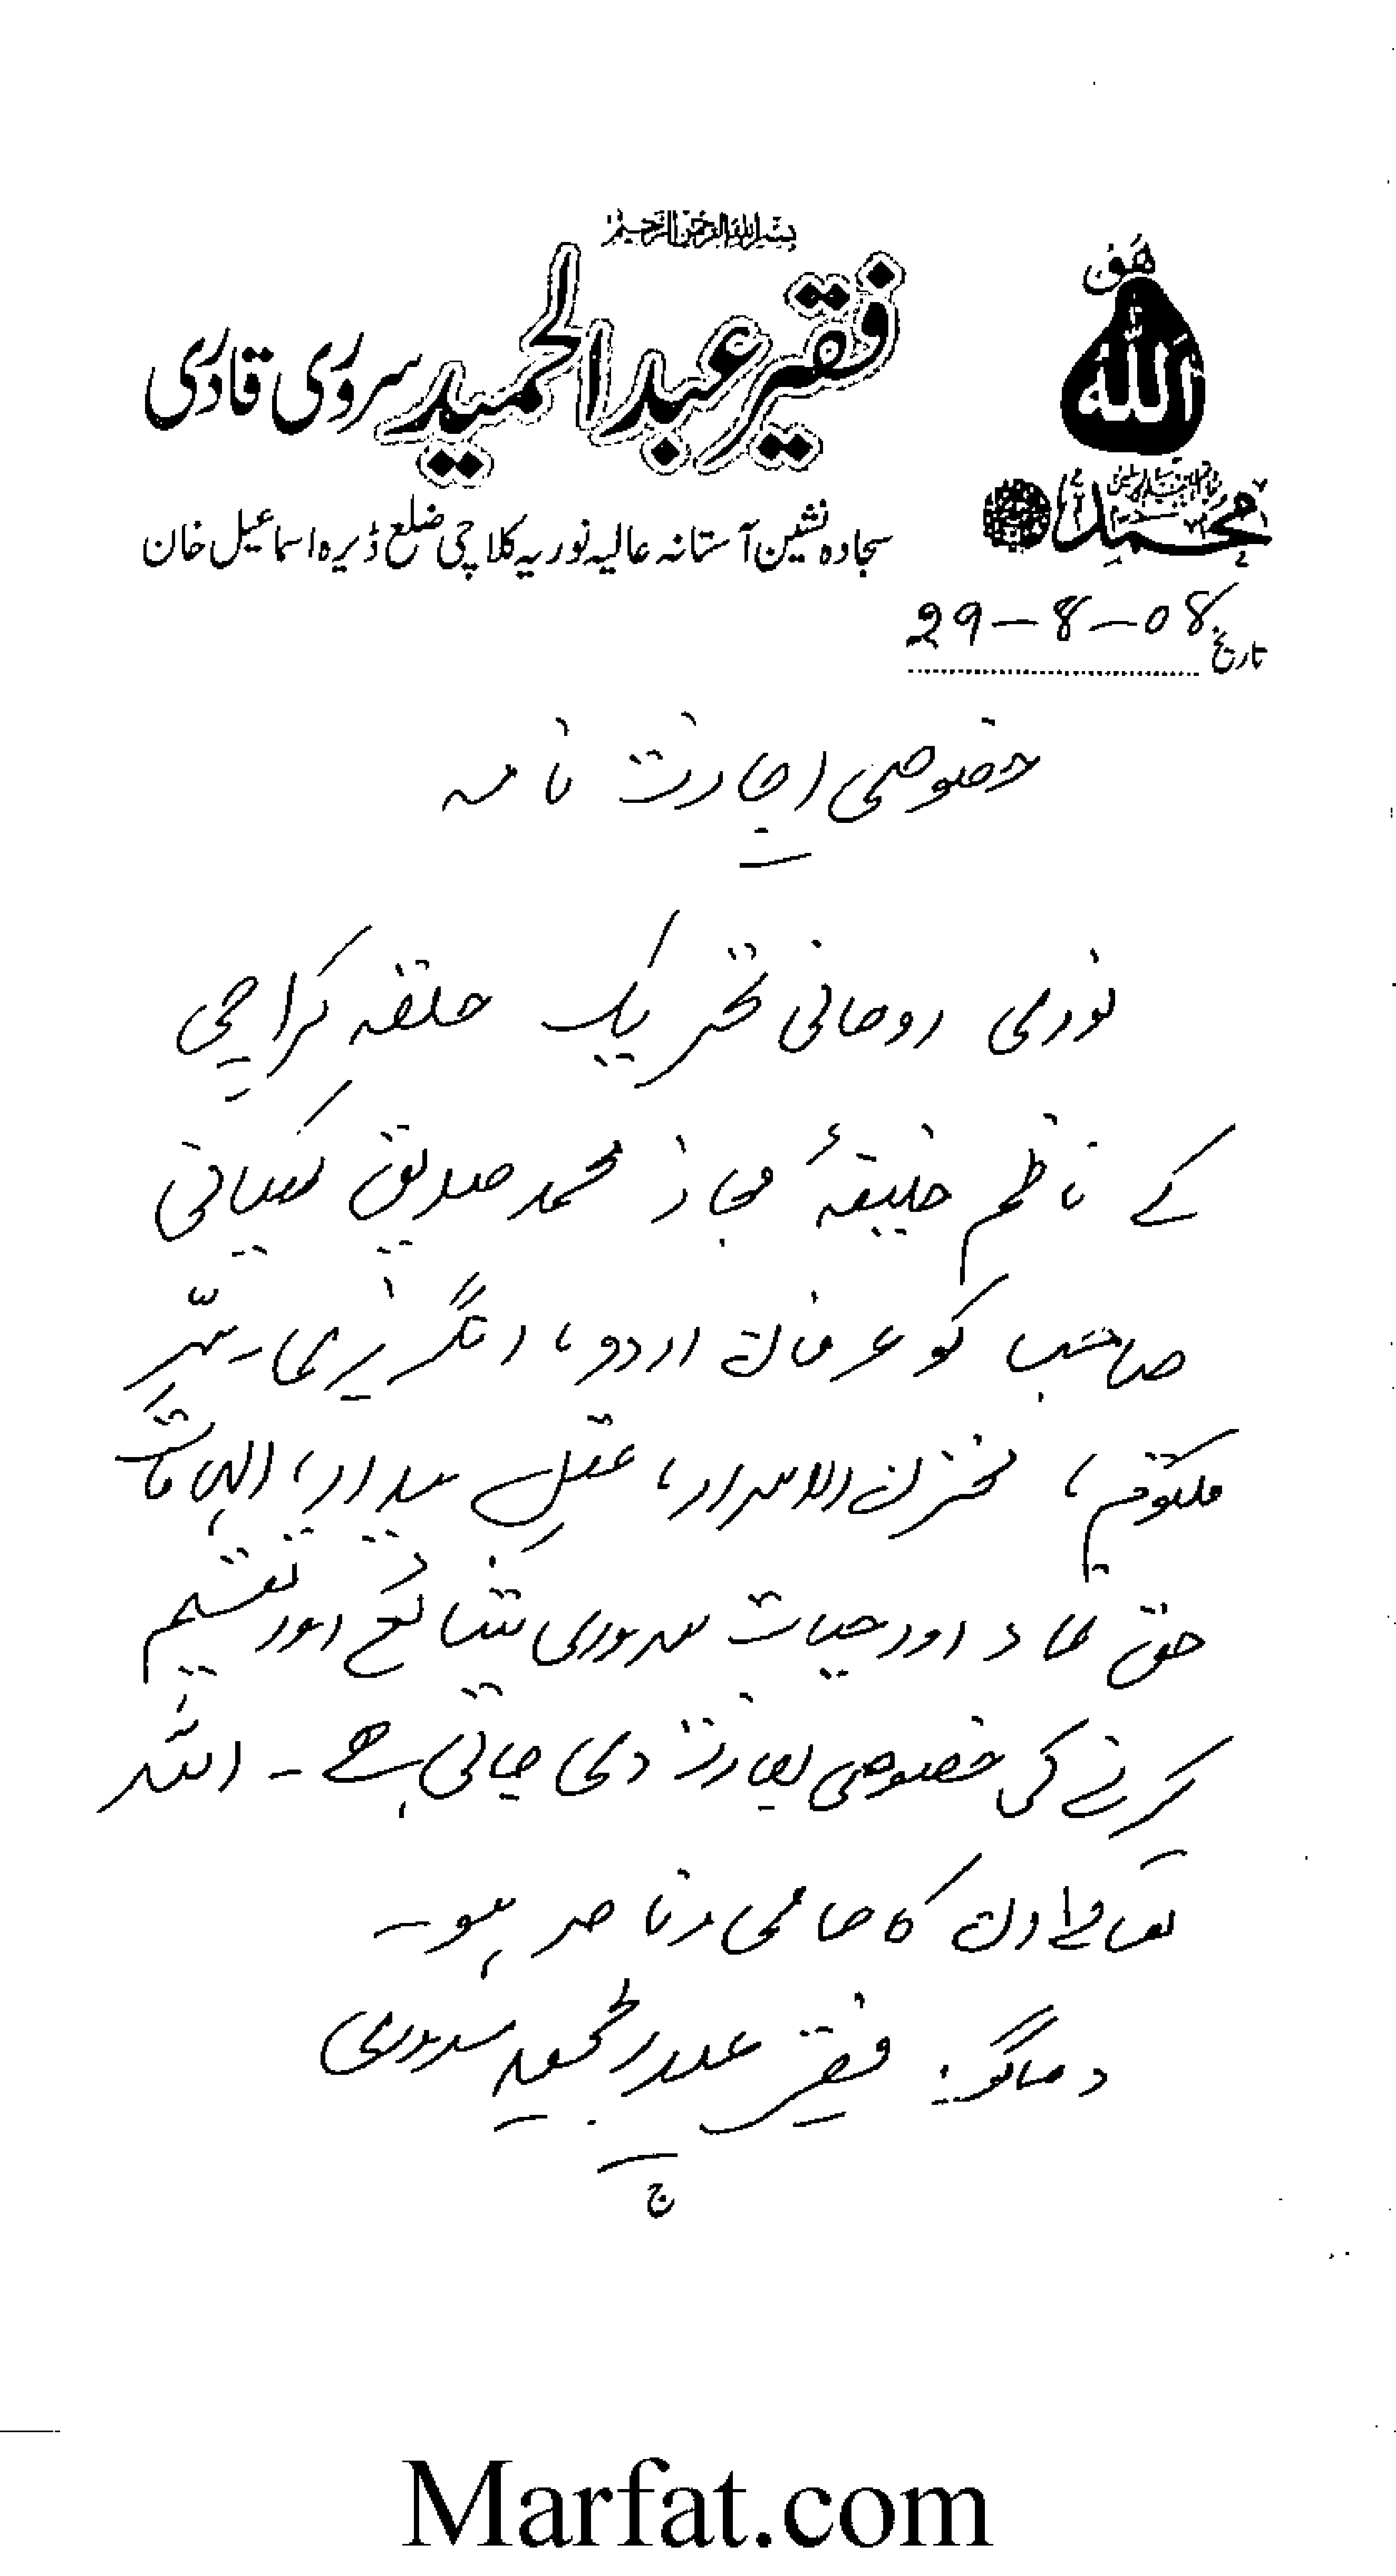 بسم اللہ الرحمن الرحیم
ھو
اللہ
فقیر عبدالحمید سروری قادری
محمد
سجادہ نشین آستانہ عالیہ نوریہ کلاچی ضلع ڈیرہ اسماعیل خان
تاریخ 29-8-08
خصوصی اجازت نامہ
نوری روحانی تحریک حلقہ کراچی
کے ناظم خلیفۂ مجاز محمد صدیق
صاحب کو عرفان اردو، انگریزی، سِرّ
مکتوم، مخزن الاسرار، عقلِ بیدار،
حق نماد اور حیات سروری شائع اور تقسیم
کرنے کی خصوصی اجازت دی جاتی ہے۔ اللہ
تعالےٰ ان کا حامی و ناصر ہو۔
دعاگو: فقیر عبدالحمید سروری
Marfat.com